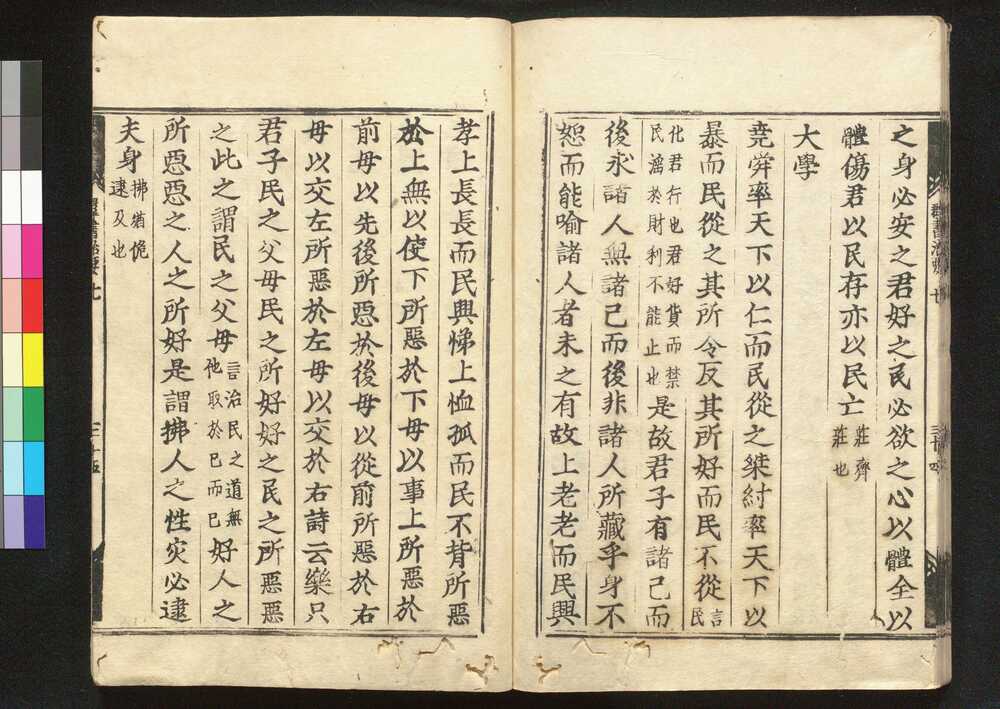 之身必安之君好之民必欲之心以體全以
體傷君以民存亦以民亡莊齊莊也
大學
堯舜率天下以仁而民從之桀紂率天下以
暴而民從之其所令反其所好而民不從言民
化君行也君好貨而禁民滛於財利不能止也是故君子有諸己而
後求諸人無諸己而後非諸人所藏乎身不
恕而能喻諸人者未之有故上老老而民興
孝上長長而民興悌上恤孤而民不背所惡
於上無以使下所惡於下毋以事上所惡於
前毋以先後所惡於後毋以從前所惡於右
毋以交左所惡於左毋以交於右詩云樂只
君子民之父母民之所好好之民之所惡惡
之此之謂民之父母言治民之道無他取於己而已好人之
所惡惡人之所好是謂拂人之性災必逮
夫身拂猶佹逮及也
群書治要七
三十五